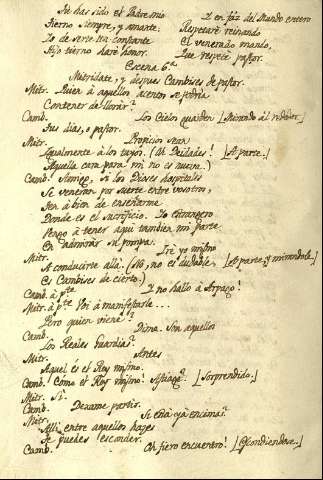 Si has sido el Padre mio
Tierno siempre, y amante,
Yo de serte tan constante
Hijo tierno haré honor.
Y en faz del Mundo entero
Respetaré reinando
El venerado mando,
Que respeté pastor.
Escena 6.ª
Mitridate, y despues Cambises de pastor.
Mitr. Quien à aquellos acentos se podria
Contener de llorar?
Camb. Los Cielos guarden [Mirando al rededor.]
Tus dias, o pastor.
Mitr. Propicios sean
Igualmente à los tuyos. (Oh Deidades! [A parte.]
Aquella cara para mi no es nueva.)
Camb. Amigo, si los Dioses hospitales
Se veneran por suerte entre vosotros,
Ten à bien de enseñarme
Donde es el sacrificio. Yo Estrangero
Vengo à tener aqui tambien mi parte
En admirar su pompa.
Mitr. Iré yo mismo
A conducirte allá. (No, no es dudable, [A parte, y mirandole.]
Es Cambises de cierto.)
Camb. à p.te Y no hallo à Arpago!
Mitr. à p.te Voi à manifestarle...
Pero quien viene?
Camb. Dime. Son aquellos
Los Reales Guardias?
Mitr. Antes
Aquel és el Rey mismo.
Camb. Como el Rey mismo! Astiages? [Sorprendido.]
Mitr. Si.
Camb. Dexame partir.
Mitr. Se está yà encima.
Alli entre aquellos hazes
Te puedes esconder.
Camb. Oh fiero encuentro! [Escondiendose.]